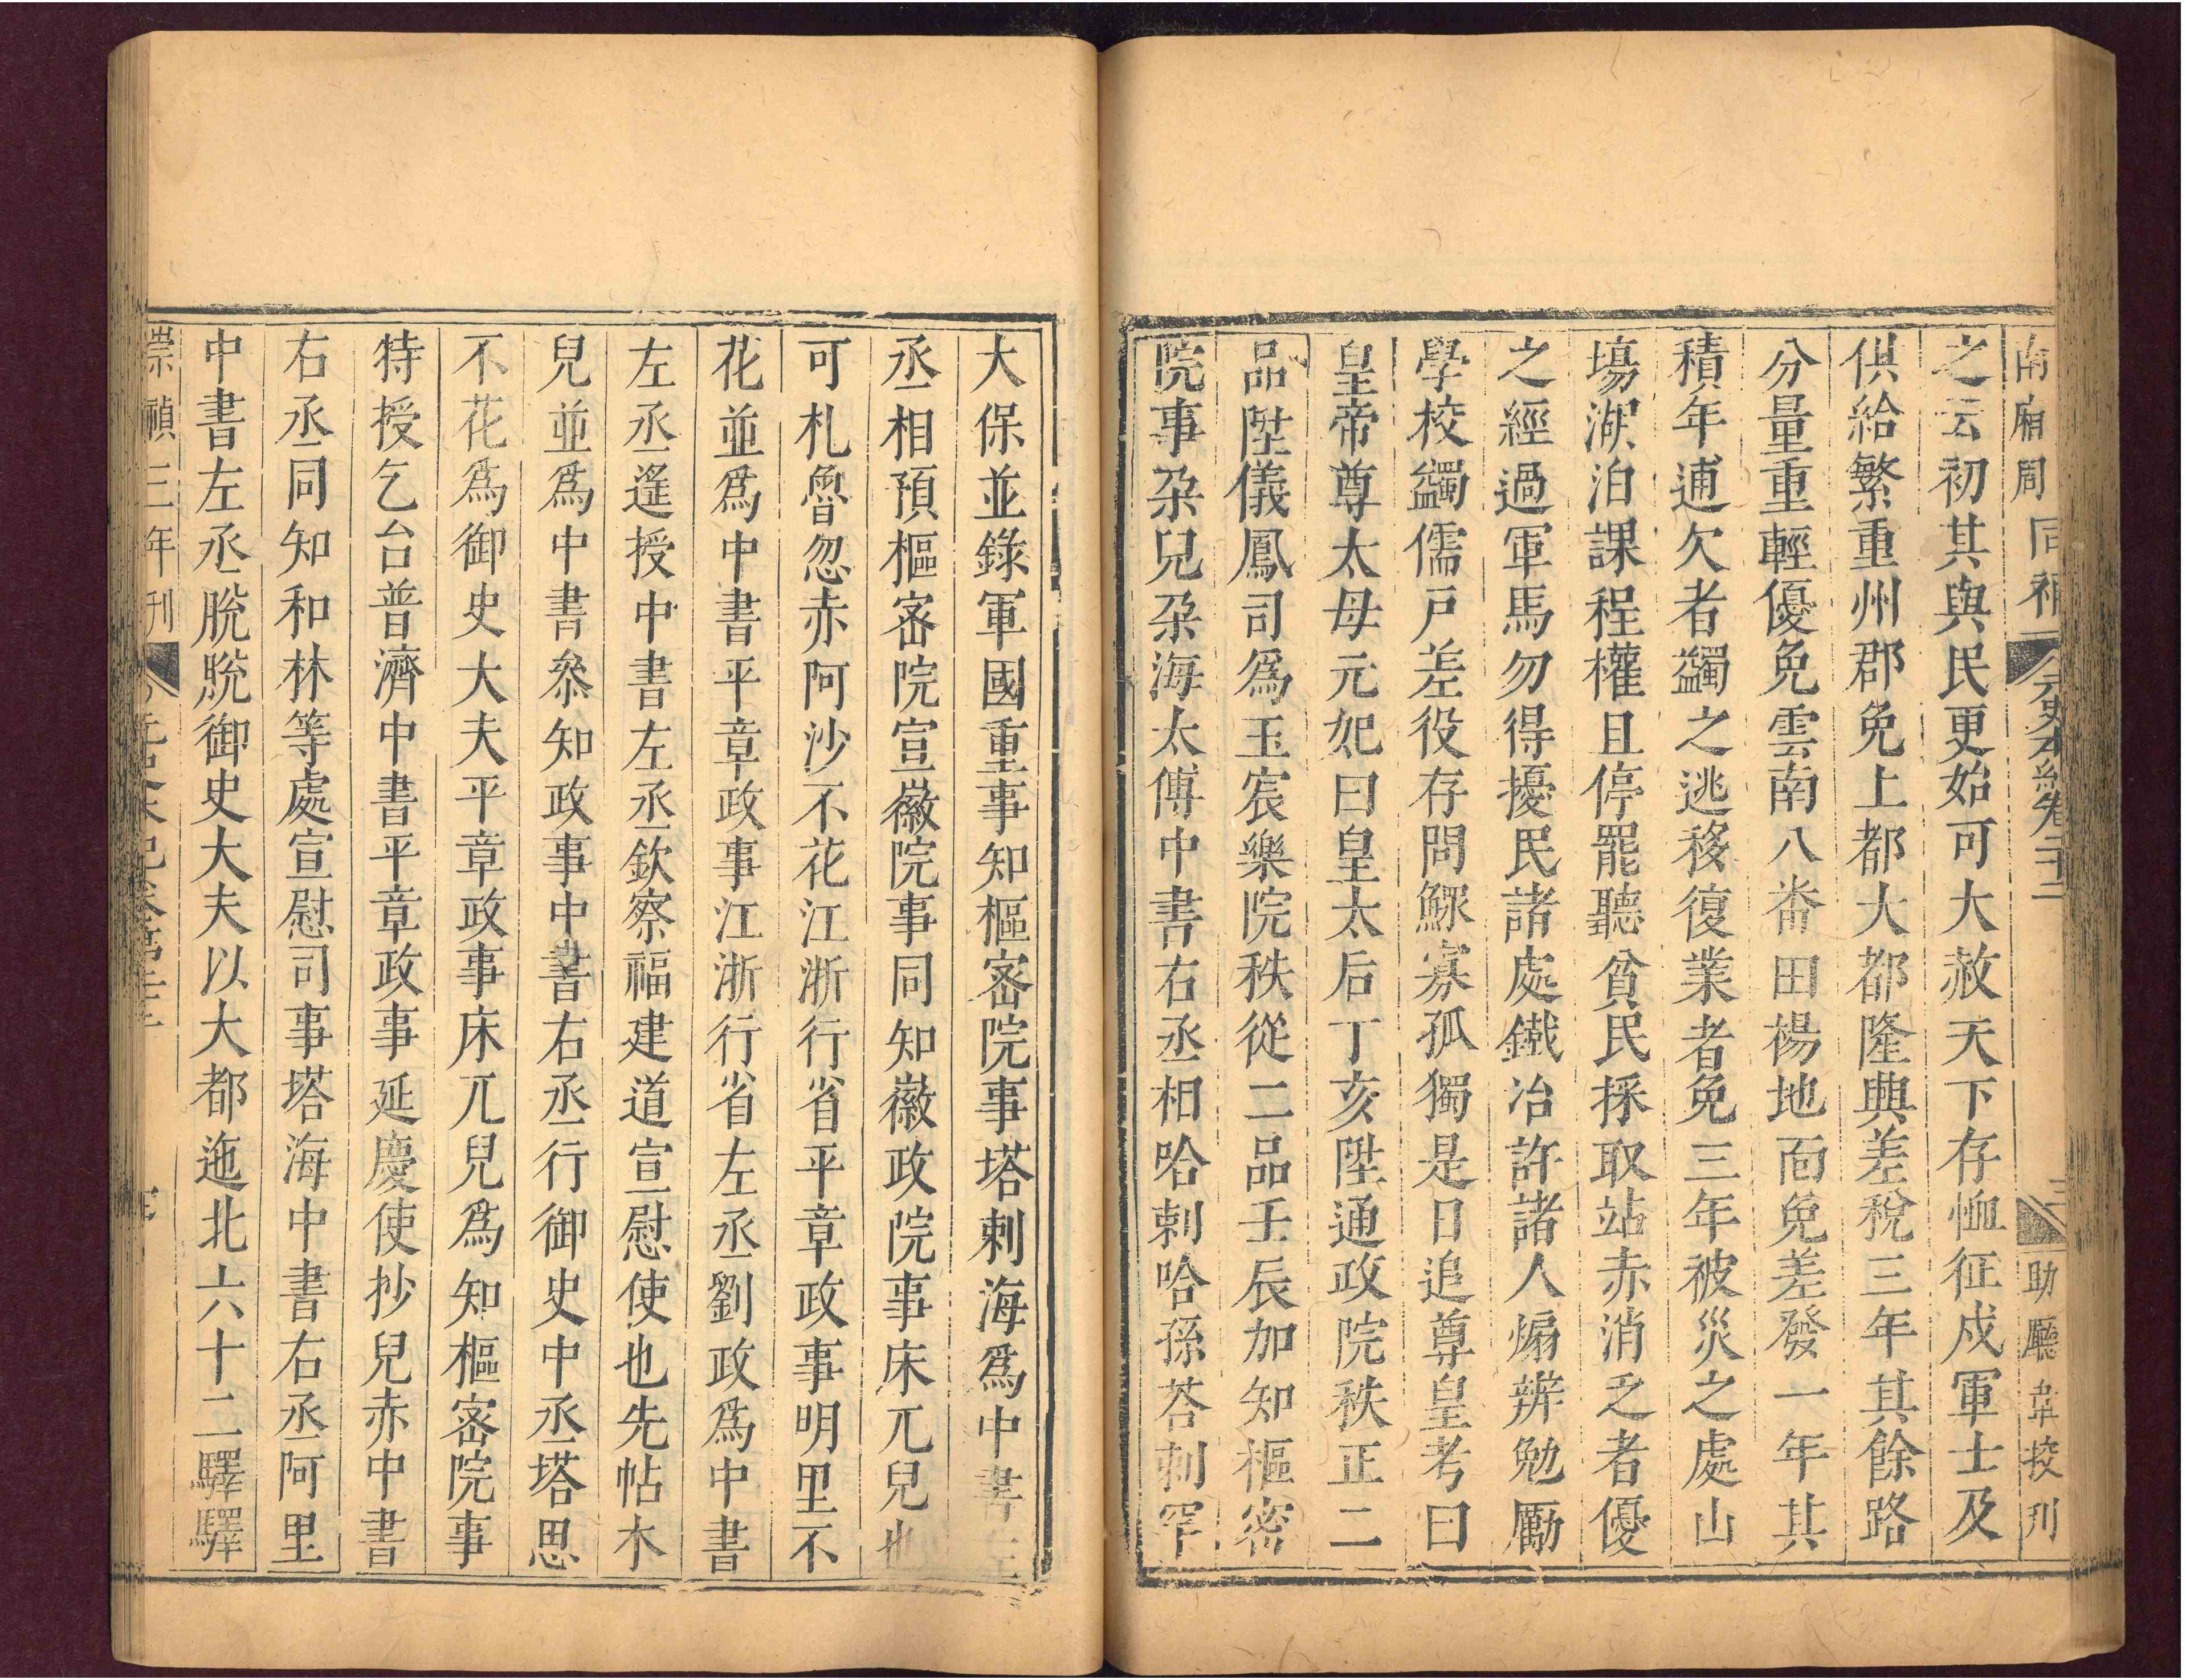 南廂周同補 元史本紀卷二十二 三 助廳韋挍刊
之云初其與民更始可大赦天下存恤征戍軍士及
供給繁重州郡免上都大都隆興差稅三年其餘路
分量重輕優免雲南八畨田楊地面免差發一年其
積年逋欠者蠲之逃移復業者免三年被災之處山
塲湖泊課程權且停罷聽貧民採取站赤消乏者優
之經過軍馬勿得擾民諸處鐵冶許諸人煽辨勉勵
學校蠲儒戶差役存問鰥寡孤獨是日追尊皇考曰
皇帝尊太母元妃曰皇太后丁亥陞通政院秩正二
品陞儀鳳司爲玉宸樂院秩從二品壬辰加知樞密
院事朶兒朶海太傅中書右丞相哈剌哈孫荅剌罕
大保並錄軍國重事知樞宻院事塔剌海爲中書左
丞相預樞宻院宣徽院事同知徽政院事床兀兒也
可札魯忽赤阿沙不花江浙行省平章政事明里不
花並爲中書平章政事江浙行省左丞劉政爲中書
左丞遙授中書左丞欽察福建道宣慰使也先帖木
兒並爲中書叅知政事中書右丞行御史中丞塔思
不花爲御史大夫平章政事床兀兒爲知樞宻院事
特授乞台普濟中書平章政事延慶使抄兒赤中書
右丞同知和林等處宣慰司事塔海中書右丞阿里
中書左丞脫脫御史大夫以大都迤北六十二驛驛
崇禎三年刊